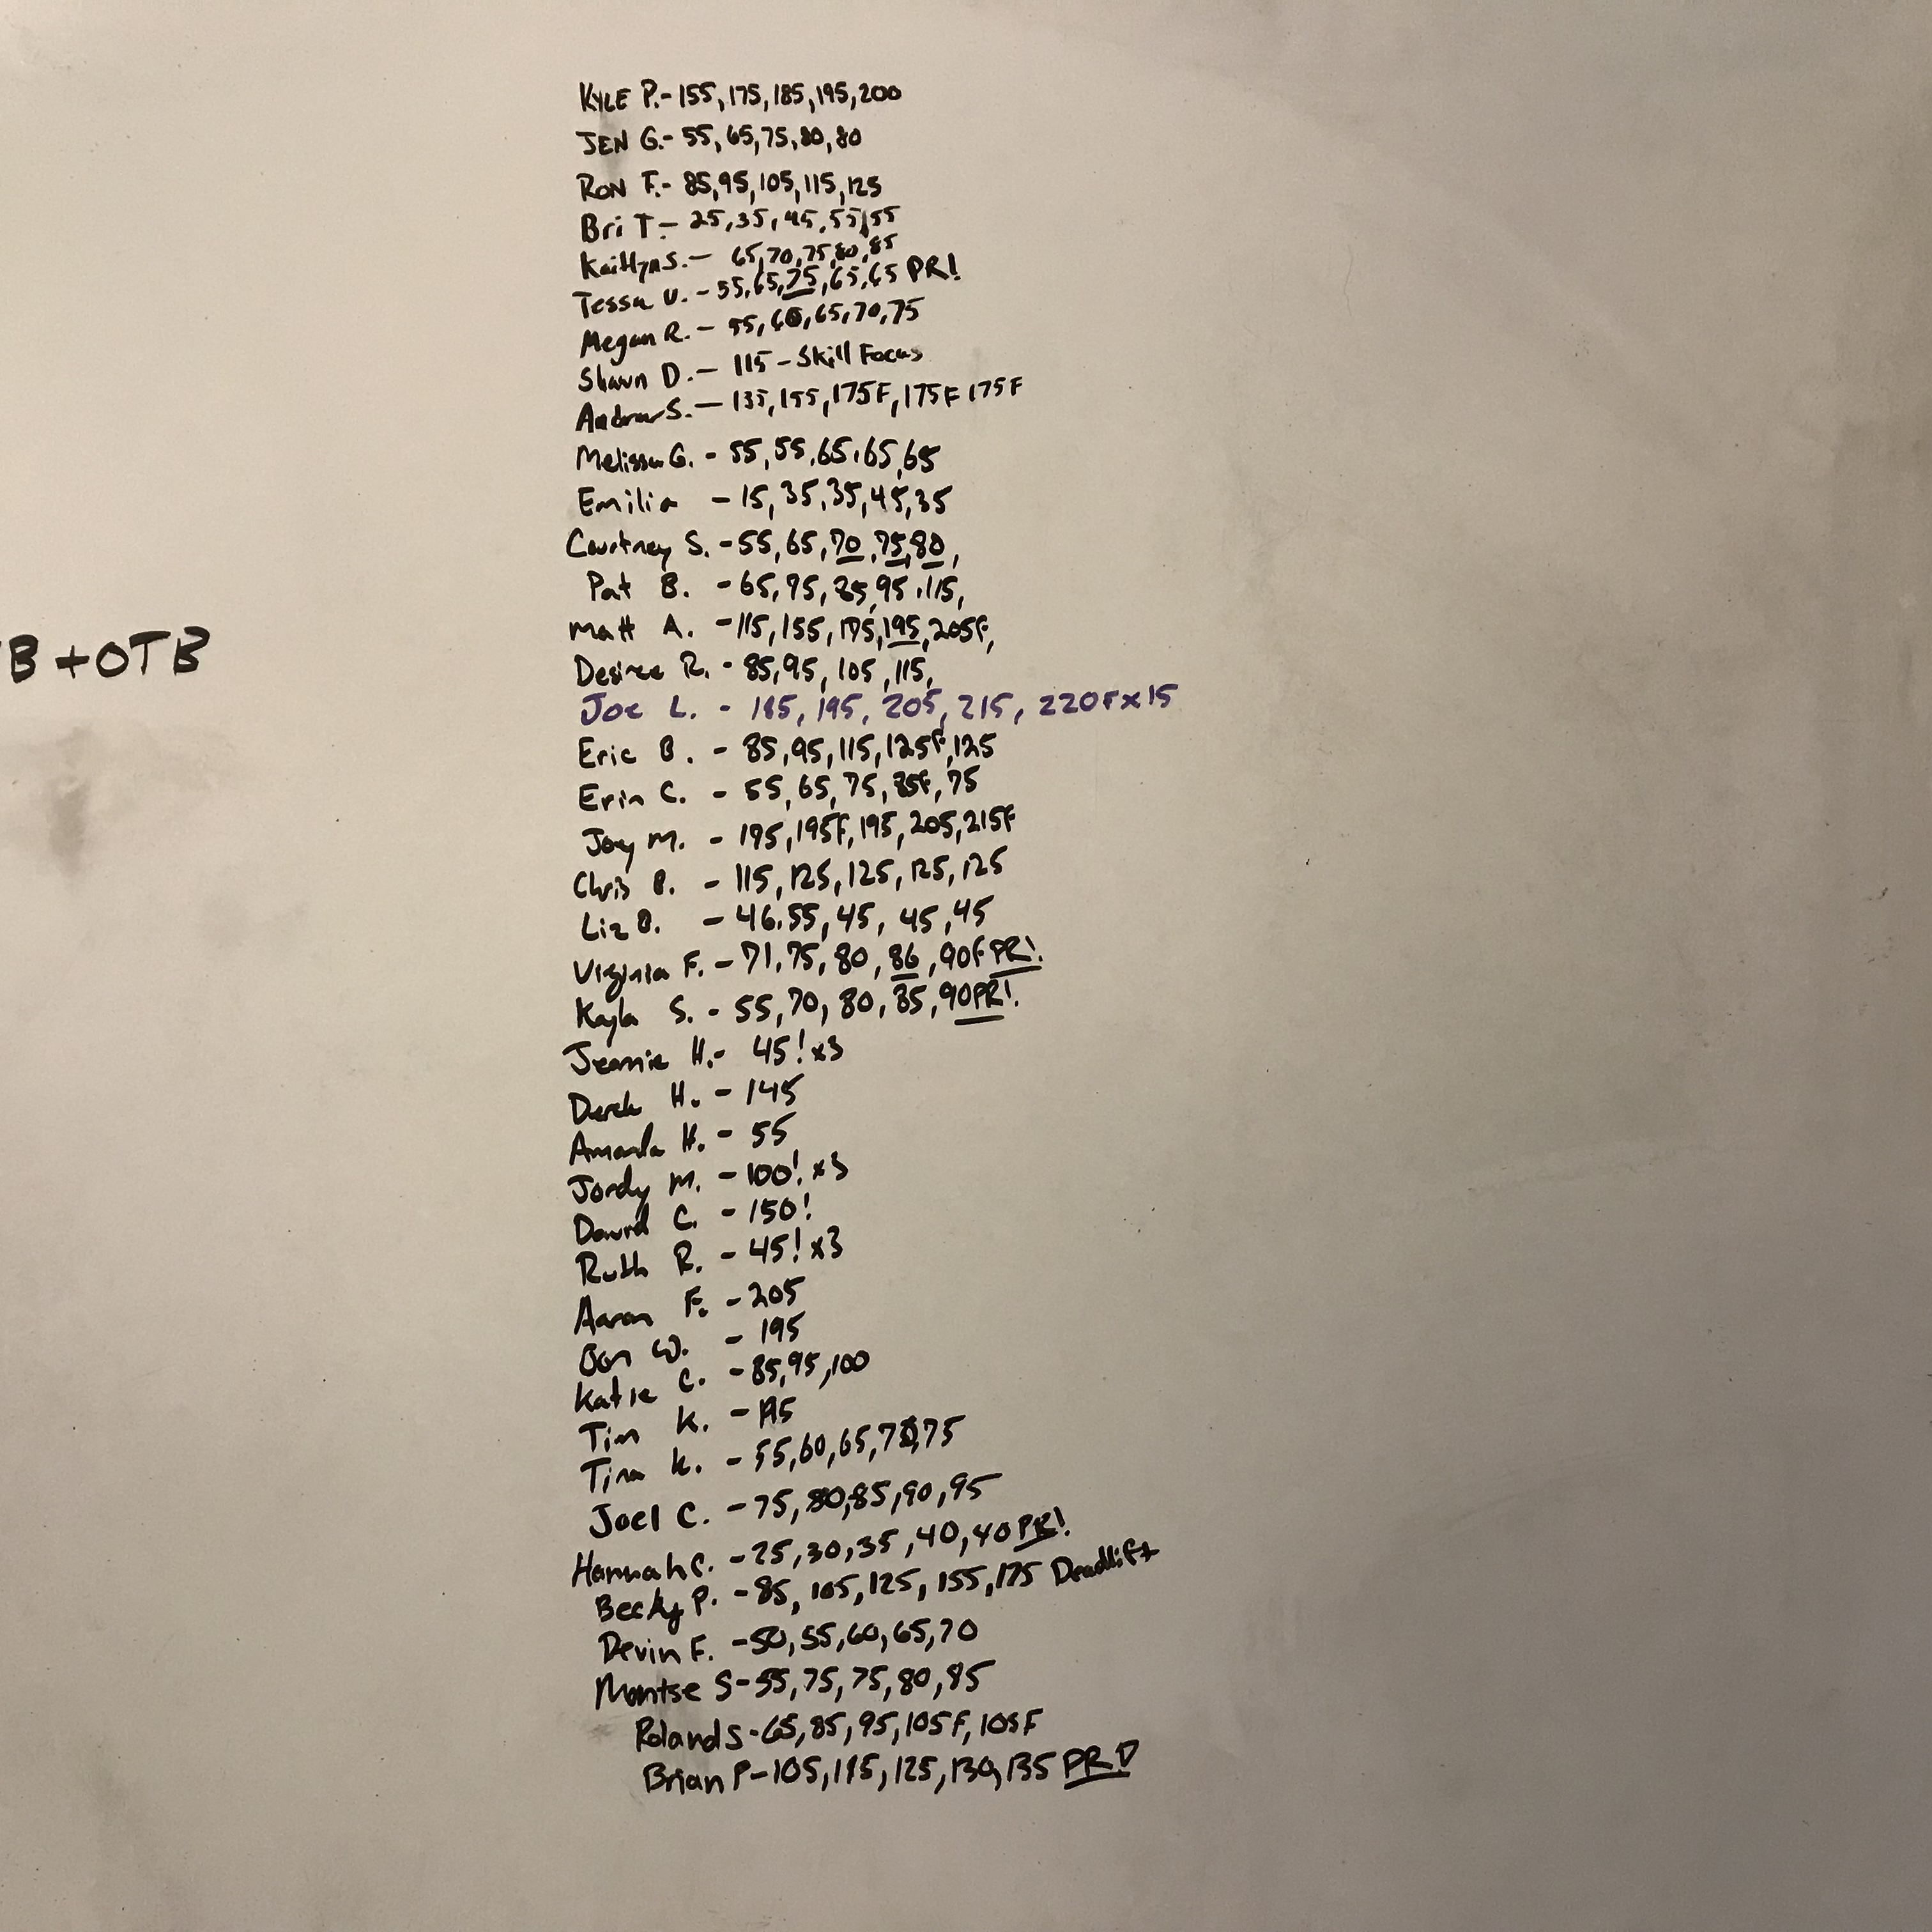 KYLE P.- 155, 175, 185, 195, 200
JEN G.- 55, 65, 75, 80, 80
RON F.- 85, 95, 105, 115, 125
Bri T- 25, 35, 45, 55, 55
Kaitlyn S.- 65, 70, 75, 80, 85
Tessa V. - 55, 65, 75, 65, 65 PR!
Megan R. - 55, 60, 65, 70, 75
Shawn D. - 115 - Skill Focus
Andrew S. - 135, 155, 175F, 175F 175F
Melissa G. - 55, 55, 65, 65, 65
Emilia - 15, 35, 35, 45, 35
Courtney S. - 55, 65, 70, 75, 80,
Pat B. - 65, 75, 85, 95, 115,
B + OTB
Matt A. - 115, 155, 175, 195, 205F,
Desiree R. - 85, 95, 105, 115,
Joe L. - 185, 195, 205, 215, 220F x 15
Eric B. - 85, 95, 115, 125F, 125
Erin C. - 55, 65, 75, 85F, 75
Joey M. - 195, 195F, 195, 205, 215F
Chris B. - 115, 125, 125, 125, 125
Liz B. - 46, 55, 45, 45, 45
Virginia F. - 71, 75, 80, 86, 90F PR!
Kayla S. - 55, 70, 80, 85, 90 PR!
Jeannie H. - 45! x3
Derek H. - 145
Amanda H. - 55
Jordy M. - 100! x3
David C. - 150!
Ruth R. - 45! x3
Aaron F. - 205
W. - 195
Katie C. - 85, 95, 100
Tim K. -
Tina K. - 55, 60, 65, 70, 75
Joel C. - 75, 80, 85, 90, 95
Hannah C. - 25, 30, 35, 40, 40 PR!
Becky P. - 85, 105, 125, 155, 175 Deadlift
Devin F. - 50, 55, 60, 65, 70
Montse S - 55, 75, 75, 80, 85
Roland S - 65, 85, 95, 105F, 105F
Brian P - 105, 115, 125, 130, 135 PR!